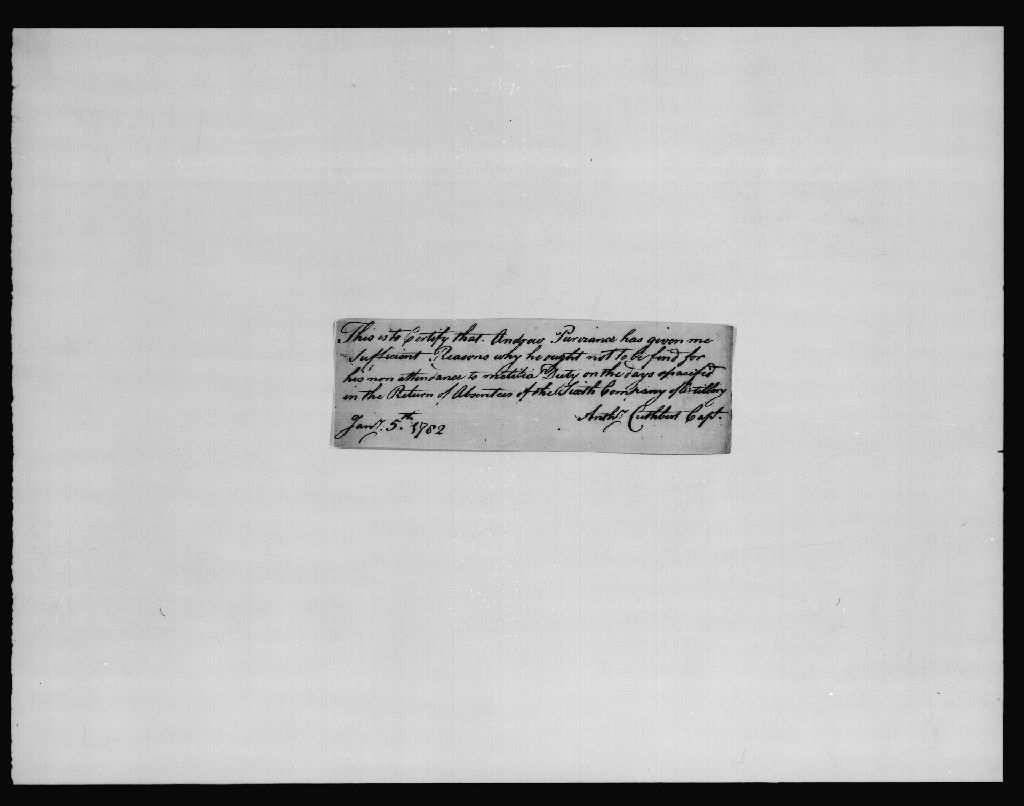 This is to Certify that Andrew Purviance has given me
Sufficient Reasons why he ought not to be find for
his non attendance to melitia Duty on the days spacified
in the Return of Absentees of the Sixth Company of Artillery
Anthy. Cuthbert Capt.
Jany. 5.th 1782